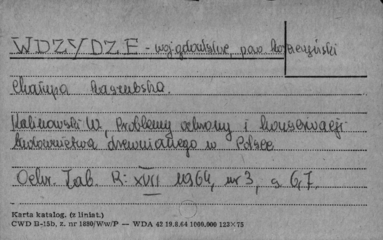 WDZYDZE - woj. gdańskie, pow. Kościerzyński
Chałupa kaszubska.
Kalinowski W, Problemy ochrony i konserwacji
budownictwa drewnianego w Polsce
Ochr. Zab. R: XVII 1964, nr 3, s 6,7.
Karta katalog. (z liniat.)
CWD B-15b, z. nr 1880/Ww/P — WDA 42 19.8.64 1000.000 123×75